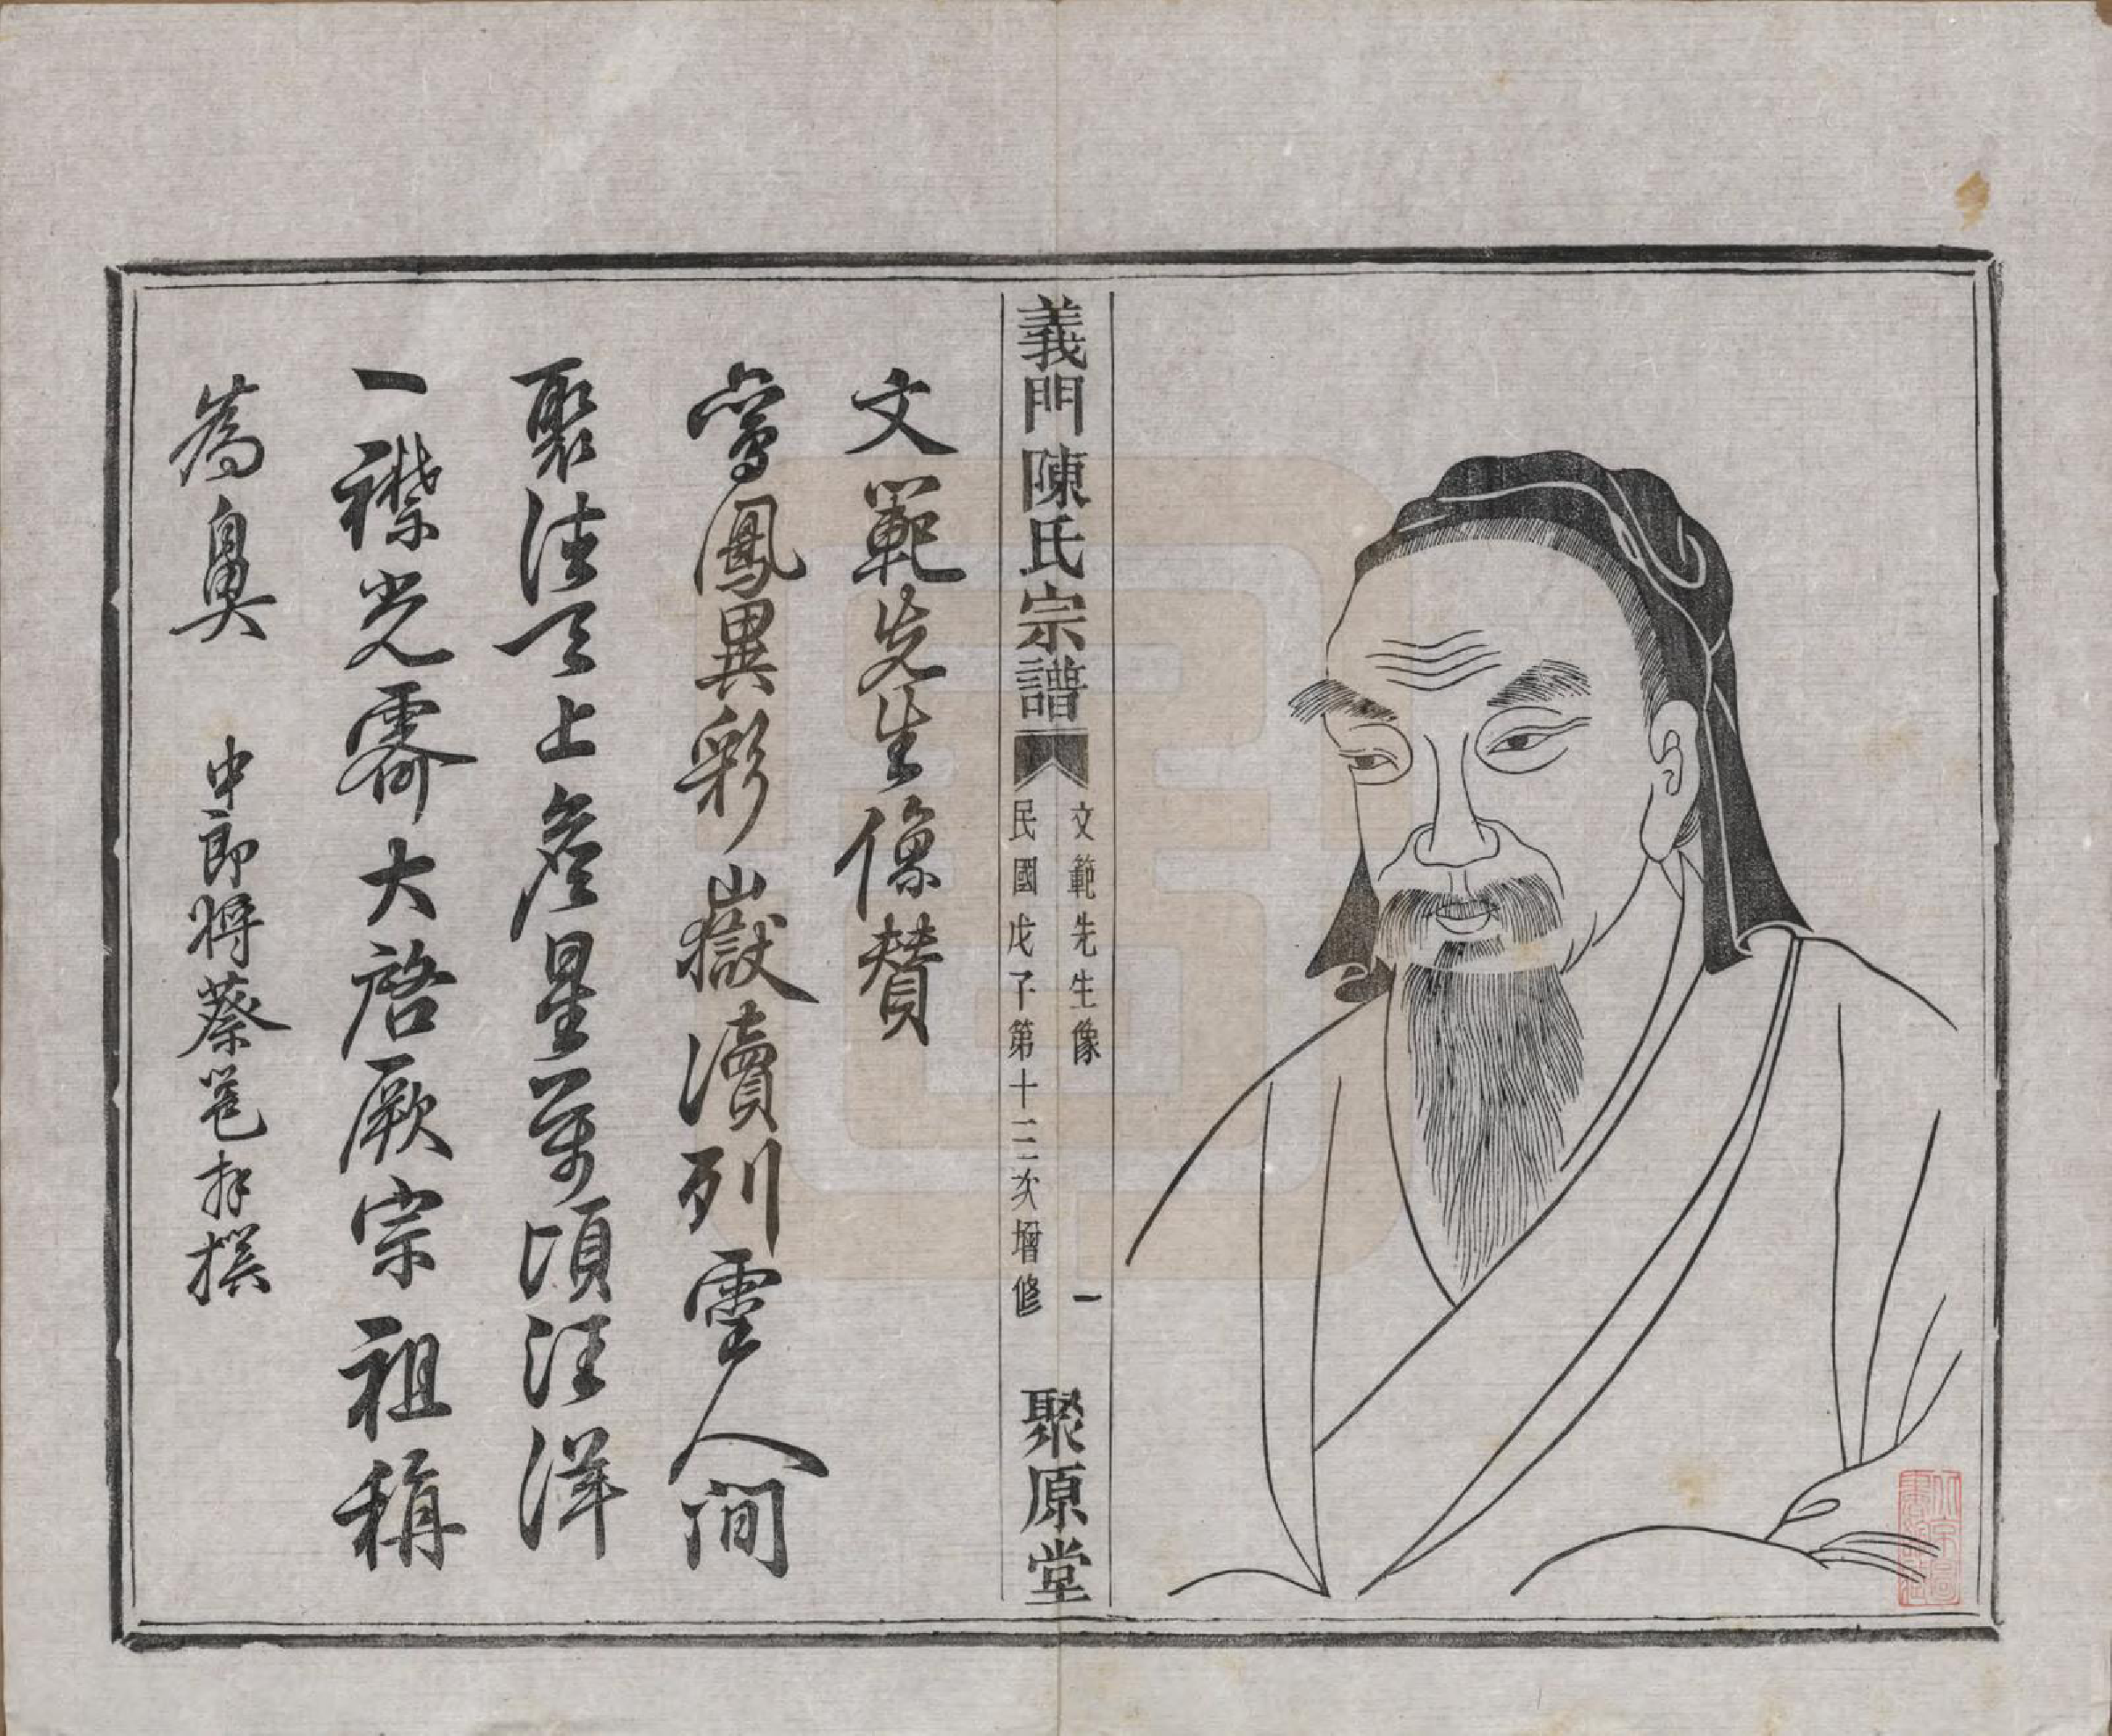 義門陳氏宗譜
文範先生像 一
民國戊子第十三次增修
聚原堂
文範先生像贊
鸞鳳異彩嶽瀆列靈人間
聚法天上詹星萬頃汪洋
一襟光霽大啓厥宗祖稱
為鼻 中郎將蔡邕拜撰